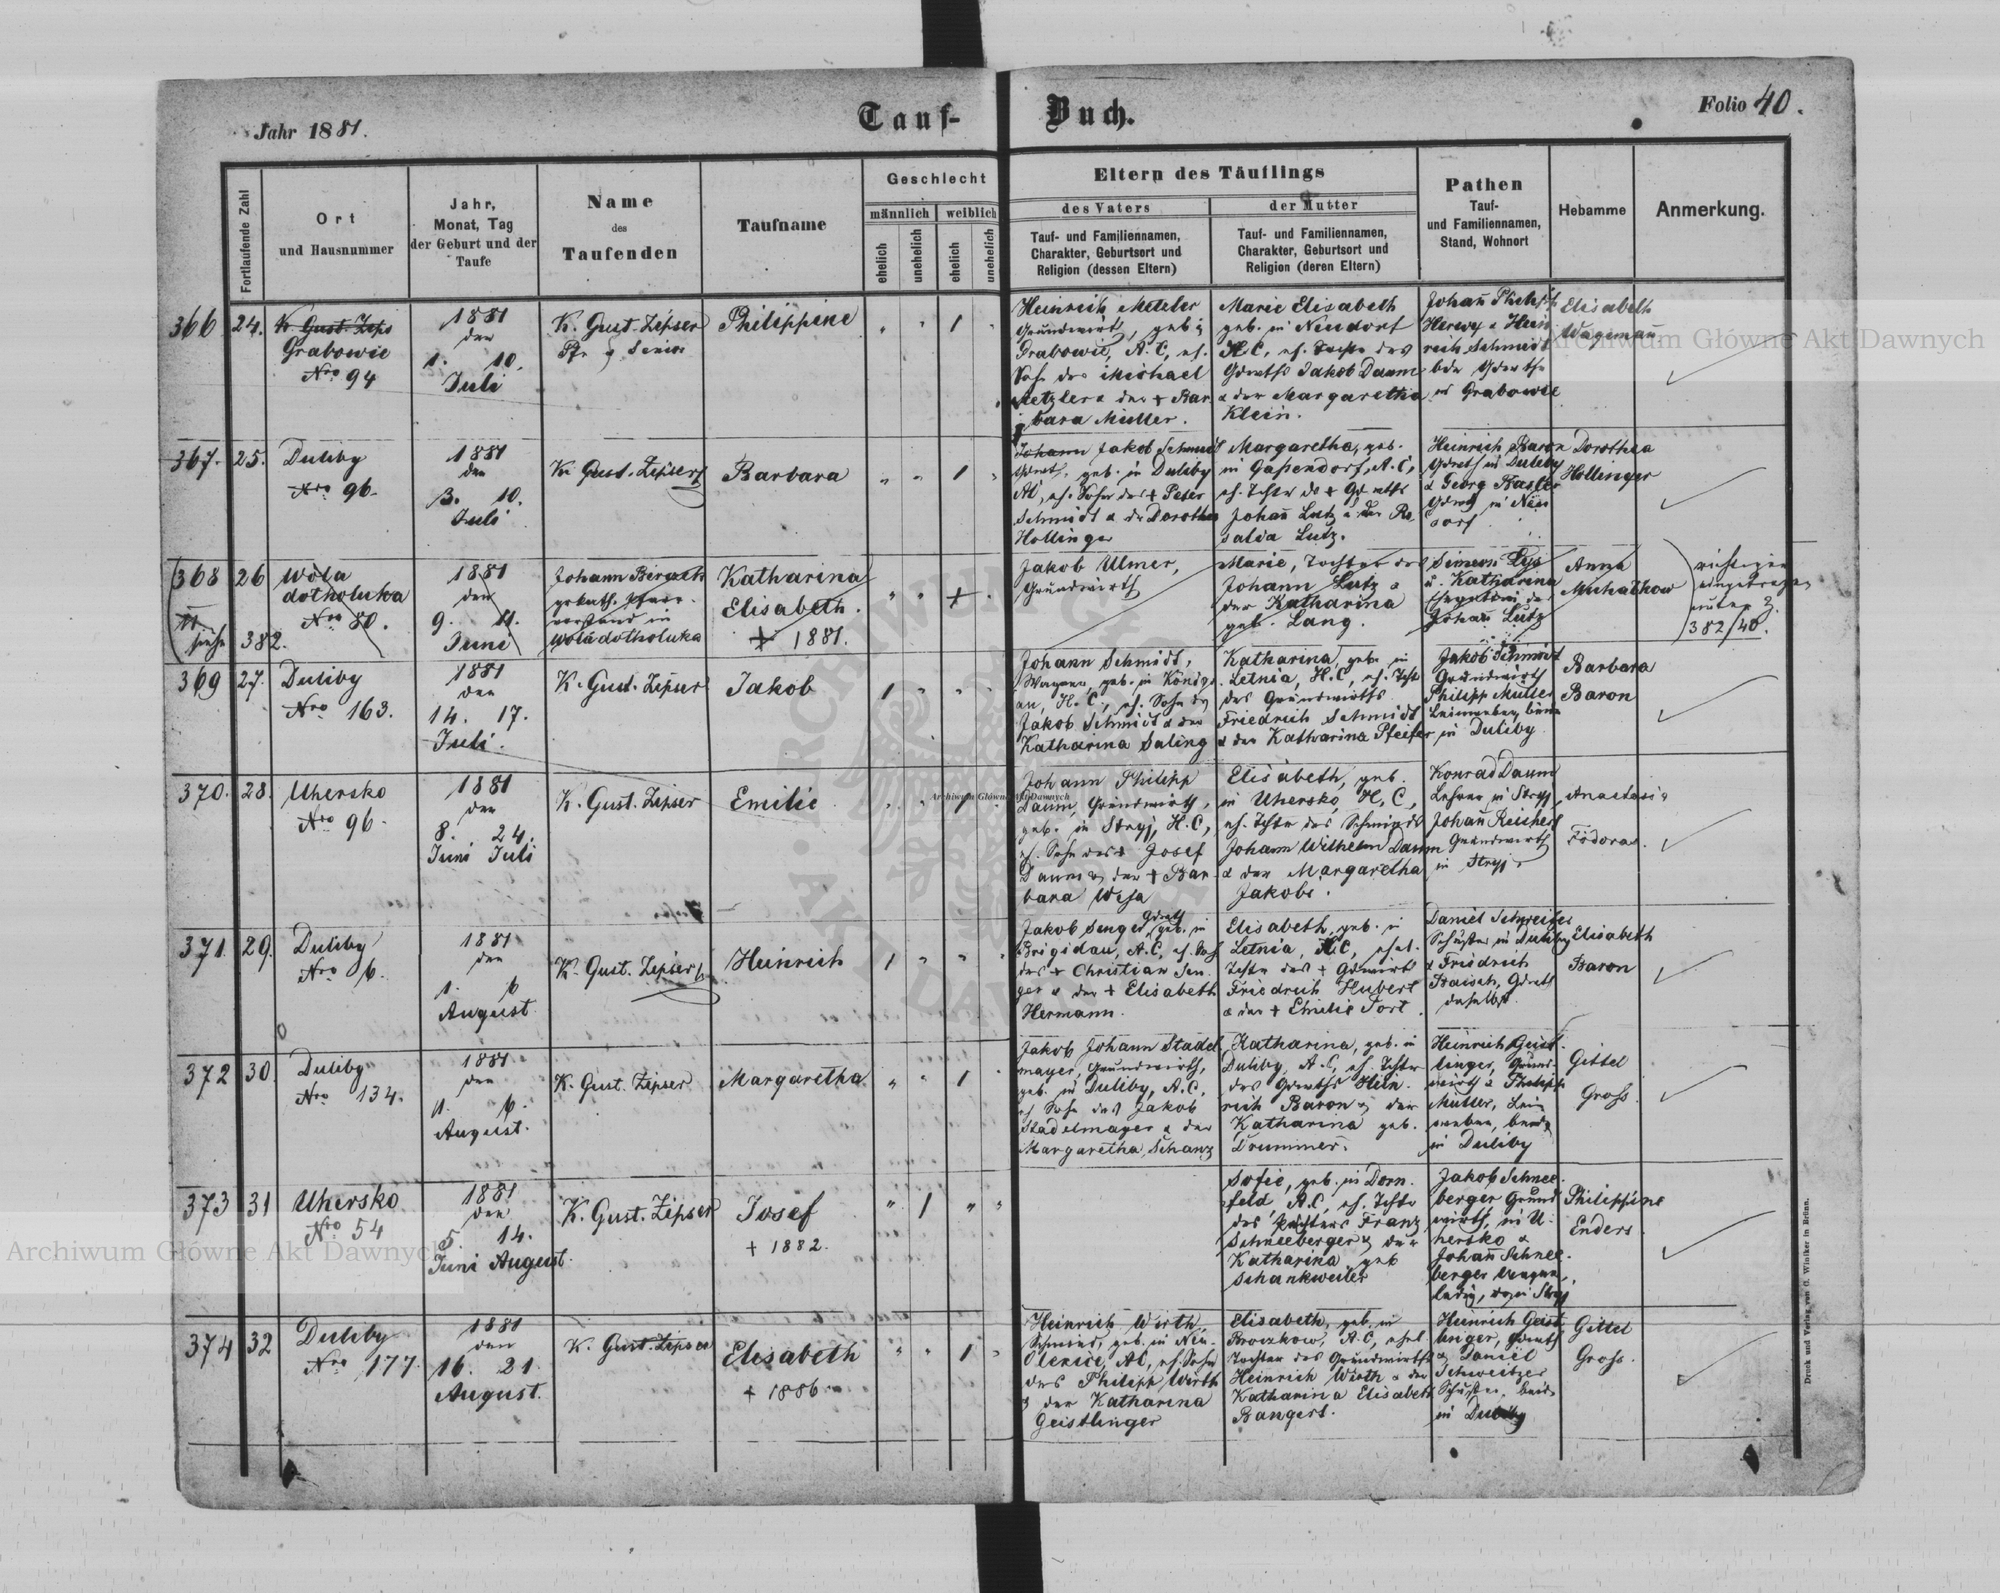 Jahr 1881.
Tauf-Buch.
Folio 40.
Fortlaufende Zahl
Ort
und Hausnummer
Jahr,
Monat, Tag
der Geburt und der
Taufe
Name
des
Taufenden
Taufname
Geschlecht
männlich
weiblich
ehelich
unehelich
ehelich
unehelich
Eltern des Täuflings
des Vaters
Tauf- und Familiennamen,
Charakter, Geburtsort und
Religion (dessen Eltern)
der Mutter
Tauf- und Familiennamen,
Charakter, Geburtsort und
Religion (deren Eltern)
Pathen
Tauf-
und Familiennamen,
Stand, Wohnort
Hebamme
Anmerkung.
366 24.
K. Gust. Zips
Grabowie
Nro 94
1881
den
1. 10.
Juli
K. Gust. Zipser
Pfr. Senior
Philippine
" " 1 "
Heinrich Metzler
Grundwirt, geb. in
Grabowie, A.C, eh.
Sohn des Michael
Metzler u der + Bar
bara Müller.
Marie Elisabeth
geb. in Neudorf
H.C, eh. Tochter des
Gdwrths Jakob Daum
u der Margaretha
Klein.
Johañ Philipp
Herwy u Hein
rich Schmidt
bde Gdwrthe
in Grabowie
Elisabeth
Wagemañ
367. 25.
Duliby
Nro 96.
1881
den
3. 10.
Juli
K. Gust. Zipser
Barbara
" " 1 "
Johann Jakob Schmidt
Gdwrt, geb. in Duliby
AC, eh. Sohn des + Peter
Schmidt u der Dorothea
Hollinger
Margaretha, geb.
in Gaßendorf, A.C,
eh. Tchter des + Gdwrths
Johañ Lutz u der Ro
salia Lutz.
Heinrich Baron
Gdwrth in Duliby
u Georg
Gdwrth in Neu
dorf
Dorothea
Hollinger
368 26
siehe 382.
Wola
dotholuka
Nro 80.
1881
den
9. 11.
Juni
Johann
vorstand in
Wola dotholuka
Katharina
Elisabeth.
+ 1881.
" " + "
Jakob Ulmer,
Grundwirth
Marie, Tochter des
Johann Lutz u
der Katharina
geb. Lang.
Simeon Lys
u. Katharina
Johañ Lutz
Anna
Michatkow
richtig
eingetragen
unter Z.
382/40.
369 27.
Duliby
Nro 163.
1881
den
14. 17.
Juli.
K. Gust. Zipser
Jakob
1 " " "
Johann Schmidt,
Wagner, geb. in Königs
au, H.C, eh. Sohn des
Jakob Schmidt u der
Katharina Saling
Katharina, geb. in
Letnia, H.C, eh. Tchtr
des Grundwirths
Friedrich Schmidt
u der Katharina Pfeifer
Jakob Schmidt
Grundwirth
Philipp Müller
Leinweber, beide
in Duliby
Barbara
Baron
370. 28.
Uhersko
Nro 96.
1881
den
8. 24.
Juni Juli
K. Gust. Zipser
Emilie
" " 1 "
Johann Philipp
Daum, Grundwirth,
geb. in Stryj, H.C,
eh. Sohn des + Josef
Daum u der + Bar
bara Weſa
Elisabeth, geb.
in Uhersko, H.C,
eh. Tchter des Schmieds
Johann Wilhelm Daum
u der Margaretha
Jakobi.
Konrad Daum
Lehrer in Stryj,
Johañ Reichert
Grundwirth
in Stryj.
Anastasia
Fedoras.
371. 29.
Duliby
Nro 6.
1881
den
1. 6.
August
K. Gust. Zipser
Heinrich
1 " " "
Jakob Senger, Gdwrth, geb. in
Brigidau, A.C, eh. Sohn
des + Christian Sen
ger u der + Elisabeth
Hermann.
Elisabeth, geb. in
Letnia, A.C, ehel.
Tchter des + Gdwirths
Friedrich Hubert
u der + Emilie Tort.
Daniel Schweitzer
Schuster in Duliby
u Friedrich
Baisch, Gdwrth
daselbst.
Elisabeth
Baron
372 30.
Duliby
Nro 134.
1881
den
1. 6.
August.
K. Gust. Zipser
Margaretha
" " 1 "
Jakob Johann Stadel
mayer, Grundwirth,
geb. in Duliby, A.C,
eh Sohn des Jakob
Stadelmayer u der
Margaretha Schanz
Katharina, geb. in
Duliby, A.C, eh. Tchter
des Gdwrths Hein
rich Baron u der
Katharina geb.
Drummer.
Heinrich Geist
linger, Grund
wirth u Philipp
Müller, Lein
weber, beide
in Duliby
Gittel
Groß.
373 31
Uhersko
Nro 54
1881
den
5. 14.
Juni August
K. Gust. Zipser
Josef
+ 1882.
" 1 " "
Sofie, geb. in Dorn
feld, A.C, eh. Tchter
des Pächters Franz
Schneeberger u der
Katharina geb
Schankweiler
Jakob Schnee
berger Grund
wirth, in U
hersko u
Johañ Schnee
berger
ledig, in Stryj
Philippine
Enders.
374 32
Duliby
Nro 177
1881
den
16. 21.
August.
K. Gust. Zipser
Elisabeth
+ 1886.
" " 1 "
Heinrich Wirth,
Schmied, geb. in Neu
Olexice, AC, eh. Sohn
des Philipp Wirth
u der Katharina
Geistlinger
Elisabeth, geb. in
Broczkow, A.C, ehel
Tochter des Grundwirths
Heinrich Wirth u der
Katharina Elisabeth
Bangert.
Heinrich Geist
linger, Gdwrth
u Daniel
Schweitzer
Schuster, beide
in Duliby
Gittel
Groß.
Druck und Verlag von G. Winiker in Brünn.
Archiwum Główne Akt Dawnych
Archiwum Główne Akt Dawnych
Archiwum Główne Akt Dawnych